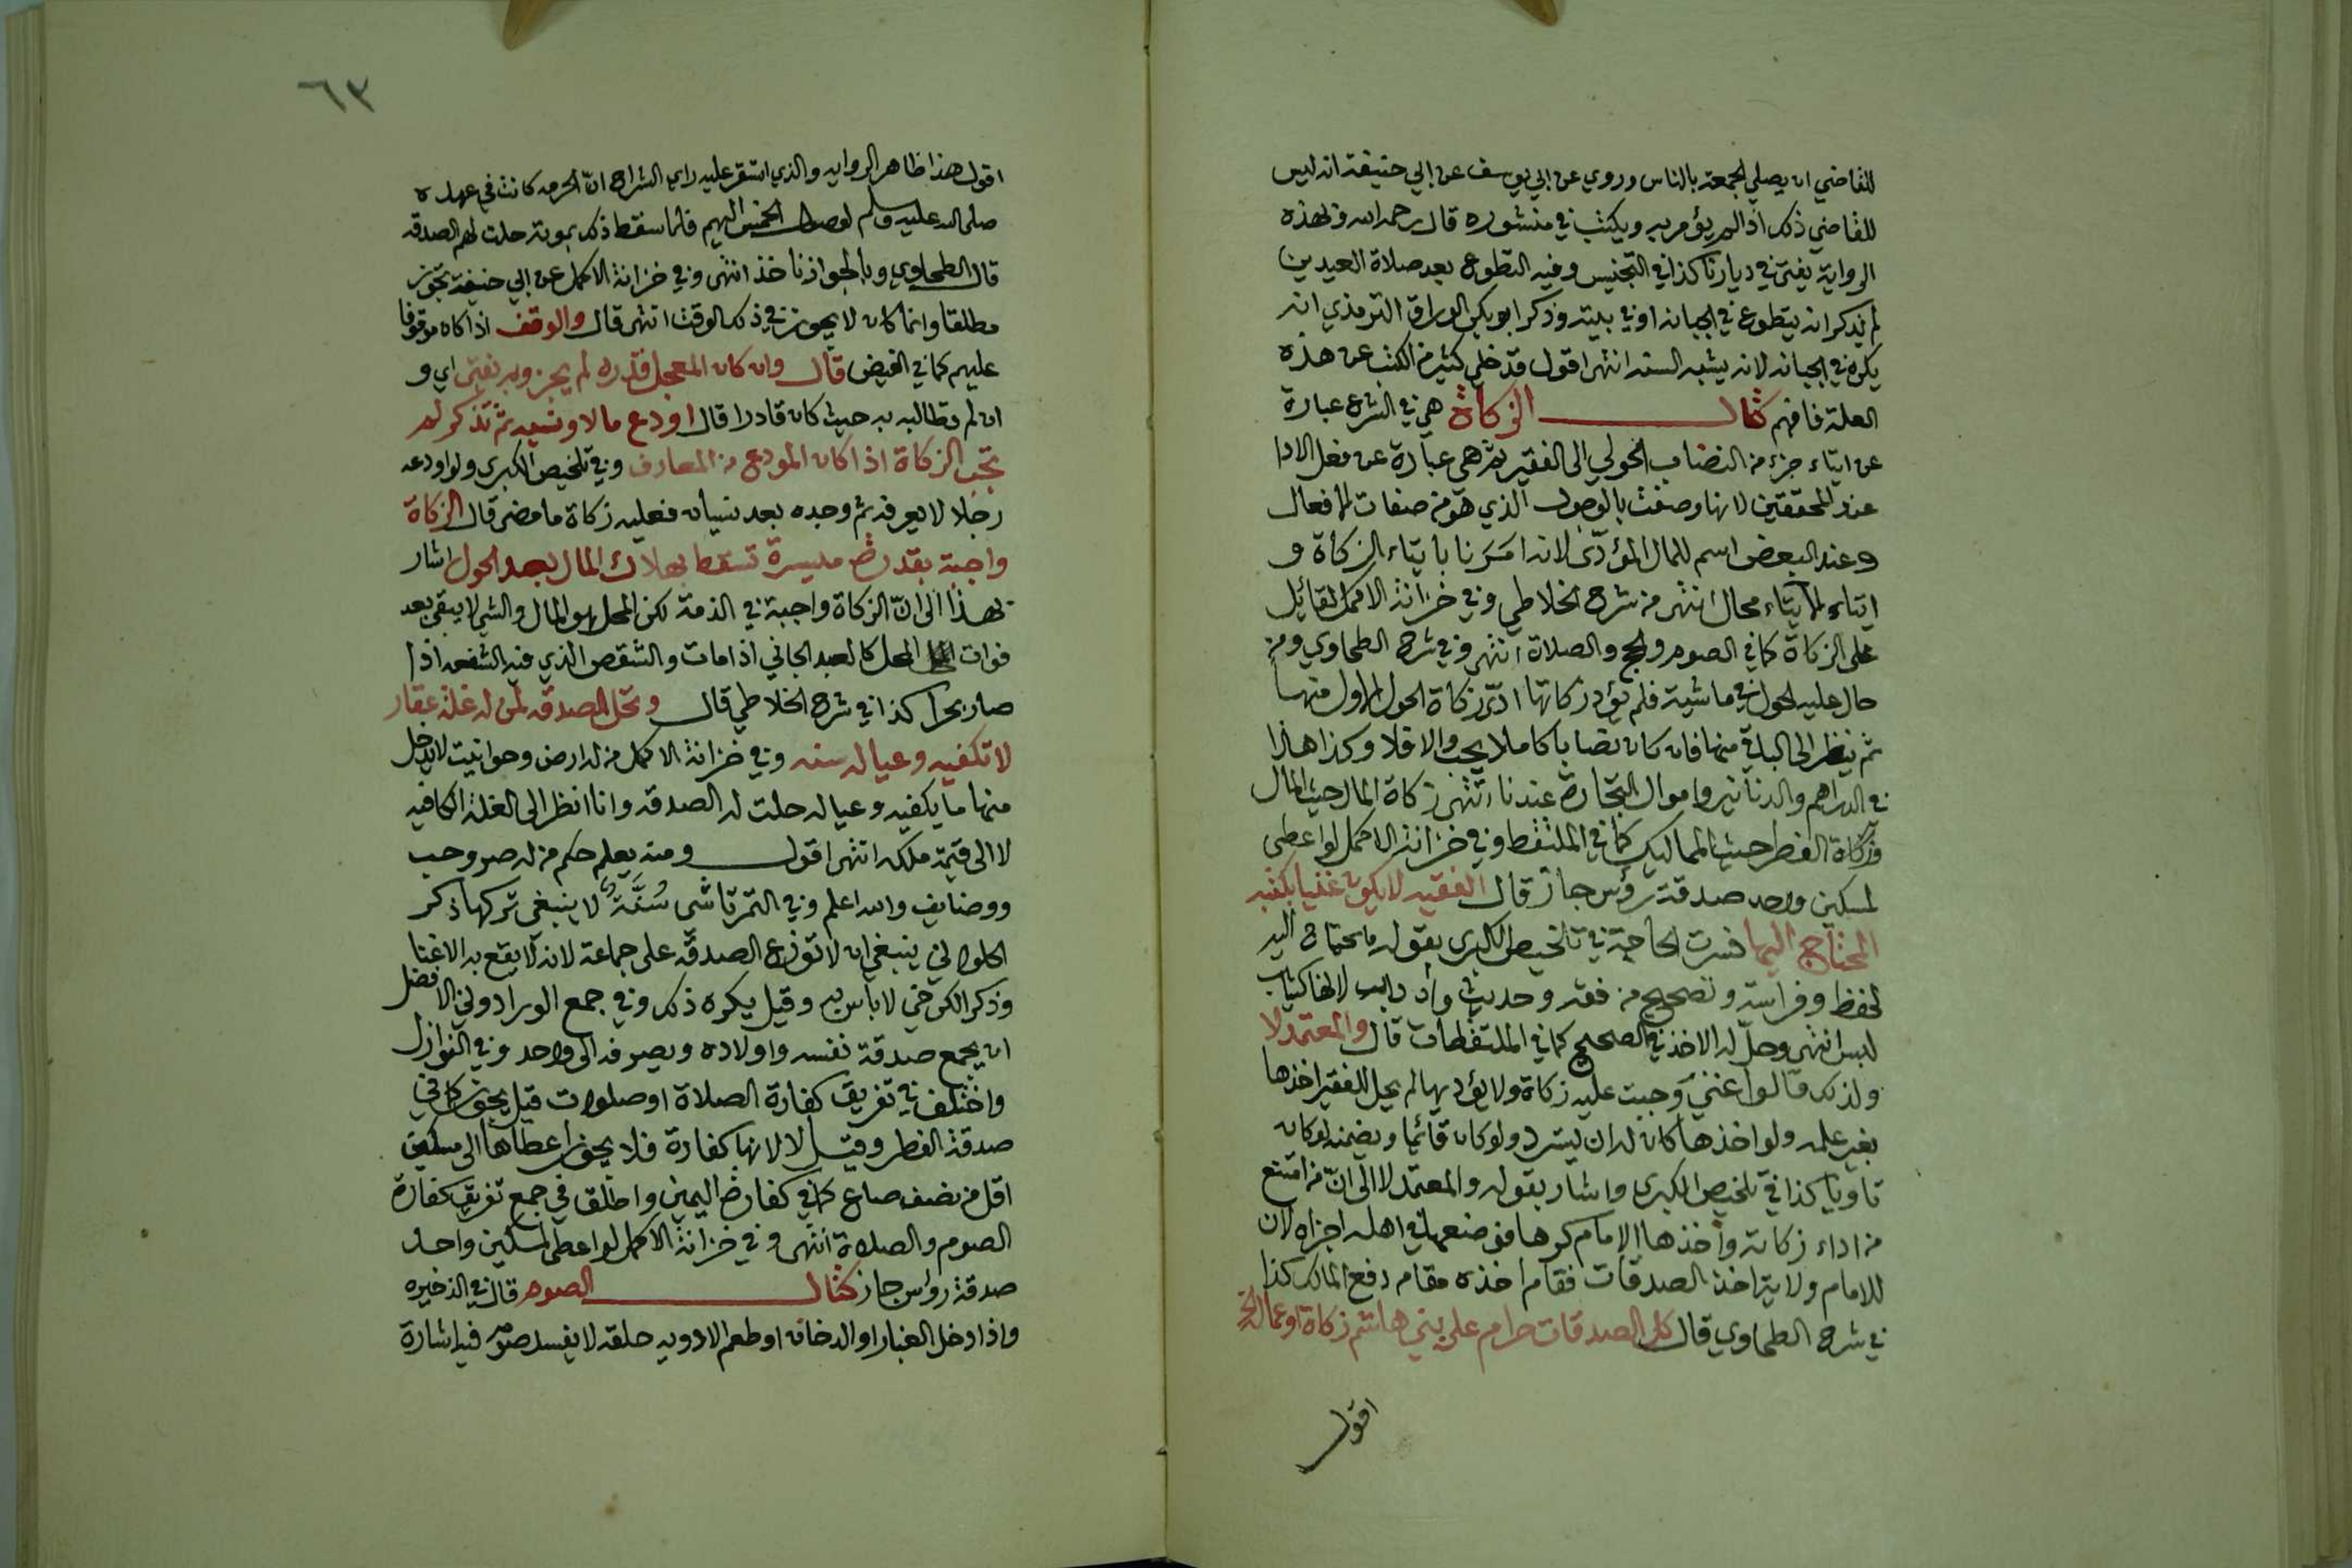 للقاضي ان يصلي الجمعة بالناس وروي عن ابي يوسف عن ابي حنيفة انه ليس
للقاضي ذلك اذا لم يؤمر به ويكتب في منشوره قال رحمه الله وبهذه
الرواية يفتى في ديارنا كذا في التجنيس وفيه التطوع بعد صلاة العيدين
لم يذكر انه يتطوع في الجبانه او في بيته وذكر ابو بكر الوراق الترمذي انه
يكره في الجبانه لانه يشبه السنه انتهى اقول قد خلي كثير من الكتب عن هذه
العلة فافهم كتاب الزكاة هي في الشرع عبارة
عن ايتاء جزء من النصاب الحولي الى الفقير ثم هي عبارة عن فعل الادا
عند المحققين لانها وصفت بالوجوب الذي هو من صفات الافعال
وعند البعض اسم للمال المؤدّى لانه امرنا بايتاء الزكاة و
ايتاء الايتاء محال انتهى من شرح الخلاطي وفي خزانة الاكمل لقائل
على الزكاة كما في الصوم والحج والصلاة انتهى وفي شرح الطحاوي ومن
حال عليه الحول في ماشية فلم يؤد زكاتها ادّى زكاة الحول الاول منها
ثم ينظر الى الباقي منها فان كان نصابا كاملا يجب والا فلا وكذا هذا
في الدراهم والدنانير واموال التجارة عندنا انتهى زكاة المال حيث المال
وزكاة الفطر حيث المماليك كما في الملتقط وفي خزانة الاكمل لو اعطى
لمسكين واحد صدقة رؤس جاز قال الفقيه لا يكون غنيا بكتبه
المحتاج اليها فسرت الحاجة في تلخيص الكبرى بقوله ما يحتاج اليه
لحفظ ودراسة وتصحيح من فقه وحديث وادب لانها كثياب
لبس انتهى وحل له الاخذ في الصحيح كما في الملتقطات قال والمعتمد لا
ولذلك قالوا غني وجبت عليه زكاة ولا يؤديها لم يحل للفقير اخذها
بغير علمه ولو اخذها كان له ان يسترد ولو كان قائما ويضمنه لو كان
تاويا كذا في تلخيص الكبرى واشار بقوله والمعتمد لا الى انّ من امتنع
من اداء زكاته واخذها الامام كرها فوضعها في اهله اجزاه لان
للامام ولاية اخذ الصدقات فقام اخذه مقام دفع المالك كذا
في شرح الطحاوي قال كل الصدقات حرام على بني هاشم زكاة او عمالة
اقول
٦٣
اقول هذا ظاهر الروايه والذي استقر عليه راي الشراح انّ الحرمه كانت في عهده
صلى الله عليه وسلم لوصول الخمس اليهم فلما سقط ذلك بموته حلت لهم الصدقه
قال الطحاوي وبالجواز ناخذ انتهى وفي خزانة الاكمل عن ابي حنيفة تجوز
مطلقا وانما كان لا يجوز في ذلك الوقت انتهى قال والوقف اذا كان موقوفا
عليهم كما في الفيض قال وان كان المعجل قدره لم يجز وبه يفتى اي و
ان لم يطالبه به حيث كان قادرا قال اودع مالا ونسيه ثم تذكر له
تجب الزكاة اذا كان المودع من المعارف وفي تلخيص الكبرى ولو اودعه
رجلا لا يعرفه ثم وجده بعد نسيان فعليه زكاة ما مضى قال الزكاة
واجبة بقدرة ميسرة تسقط بهلاك المال بعد الحول اشار
بهذا الى انّ الزكاة واجبة في الذمة لكن المحل هو المال والشي لا يبقى بعد
فوات المحل كالعبد الجاني اذا مات والشقص الذي فيه الشفعه اذا
صار بحرا كذا في شرح الخلاطي قال وتحل الصدقه لمن له غلة عقار
لا تكفيه وعياله سنه وفي خزانة الاكمل من له ارض وحوانيت لا يدخل
منها ما يكفيه وعياله حلت له الصدقه وانا انظر الى الغلة الكافيه
لا الى قيمة ملكه انتهى اقول ومنه يعلم حكم من له صر وحب
ووضايف والله اعلم وفي التمرتاشي سُنَّة لا ينبغي تركها ذكر
الحلواني ينبغي ان لا توزع الصدقه على جماعة لانه لا يقع به الاغنا
وذكر الكرخي لا باس به وقيل يكره ذلك وفي جمع الوراد وفي الافضل
ان يجمع صدقة نفسه واولاده ويصرفه الى واحد وفي النوازل
واختلف في تفريق كفارة الصلاة او صلوات قيل يجوز كما في
صدقة الفطر وقيل لا لانها كفارة فلا يجوز اعطاها الى مسكين
اقل من نصف صاع كما في كفارة اليمين واطلق في جمع تفريق كفارة
الصوم والصلاة انتهى وفي خزانة الاكمل لو اعطى لمسكين واحد
صدقة رؤس جاز كتاب الصوم قال في الذخيره
واذا دخل الغبار او الدخان او طعم الادويه حلقه لا يفسد صومه فيه اشارة